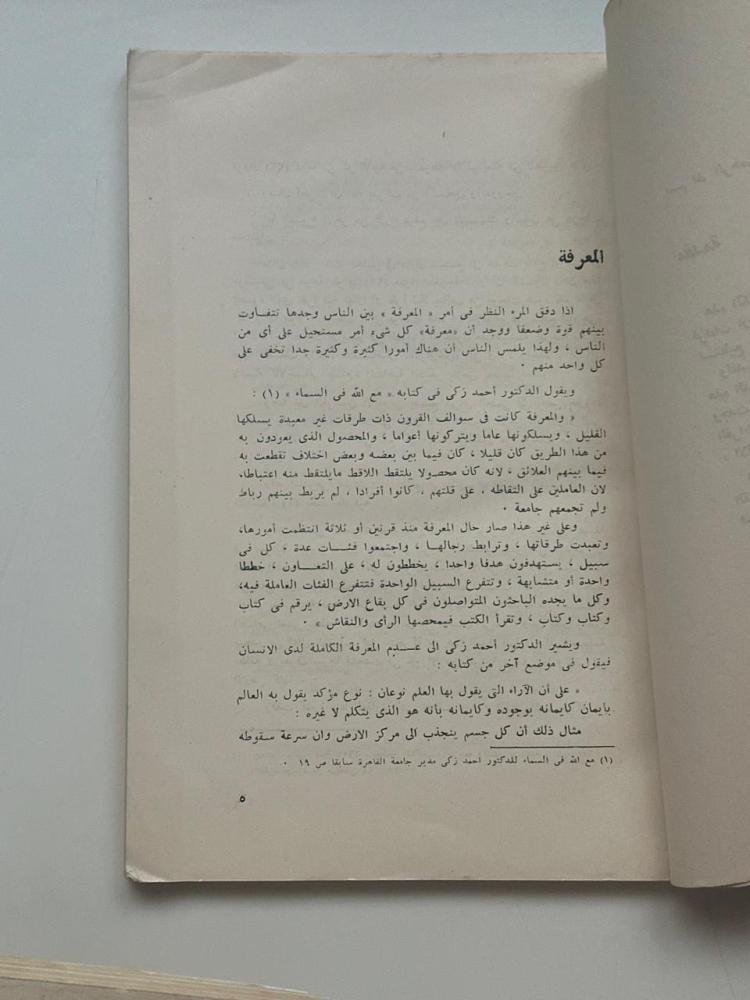 المعرفة
اذا دقق المرء النظر فى أمر « المعرفة » بين الناس وجدها تتفاوت
بينهم قوة وضعفا ووجد أن «معرفة» كل شىء أمر مستحيل على أى من
الناس ، ولهذا يلمس الناس أن هناك أمورا كثيرة وكثيرة جدا تخفى على
كل واحد منهم ٠
ويقول الدكتور أحمد زكى فى كتابه « مع الله فى السماء » (١) :
« والمعرفة كانت فى سوالف القرون ذات طرقات غير معبدة يسلكها
القليل ، ويسلكونها عاما ويتركونها أعواما ، والمحصول الذى يعودون به
من هذا الطريق كان قليلا ، كان فيما بين بعضه وبعض اختلاف تقطعت به
فيما بينهم العلائق ، لانه كان محصولا يلتقط اللاقط مايلتقط منه اعتباطا٠
لان العاملين على التقاطه ، على قلتهم ، كانوا أفرادا ، لم يربط بينهم رباط
ولم تجمعهم جامعة ٠
وعلى غير هذا صار حال المعرفة منذ قرنين أو ثلاثة انتظمت أمورها،
وتعبدت طرقاتها ، وترابط رجالهـا ، واجتمعوا فئـــات عدة ، كل فى
سبيل ، يستهدفون هدفا واحدا ، يخططون له ، على التعـــاون ، خططا
واحدة أو متشابهة ، وتتفرع السبيل الواحدة فتتفرع الفئات العاملة فيه،
وكل ما يجده الباحثون المتواصلون فى كل بقاع الارض ، يرقم فى كتاب
وكتاب وكتاب ، وتقرأ الكتب فيمحصها الرأى والنقاش » ٠
ويشير الدكتور أحمد زكى الى عـــدم المعرفة الكاملة لدى الانسان
فيقول فى موضع آخر من كتابه :
« على أن الآراء التى يقول بها العلم نوعان : نوع مؤكد يقول به العالم
بايمان كايمانه بوجوده وكايمانه بأنه هو الذى يتكلم لا غيره :
مثال ذلك أن كل جسم ينجذب الى مركز الارض وان سرعة سقوطه
(١) مع الله فى السماء للدكتور أحمد زكى مدير جامعة القاهرة سابقا ص ١٩ ٠
٥